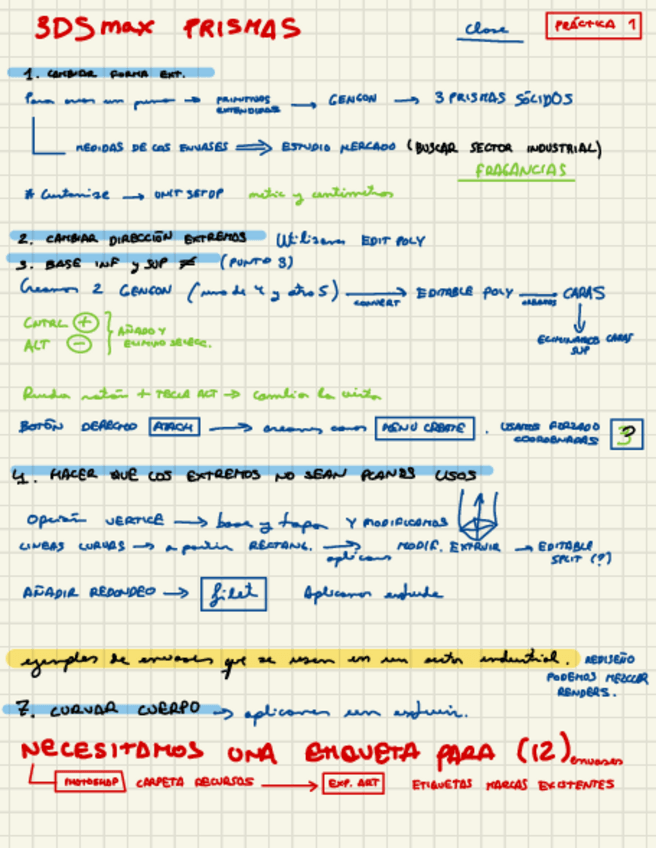 3DSmax PRISMAS
clase
PRÁCTICA 1
1. CAMBIAR FORMA EXT.
Para crear un prisma → PRIMITIVAS EXTENDIDAS → GENGON → 3 PRISMAS SÓLIDOS
MEDIDAS DE LOS ENVASES ⇒ ESTUDIO MERCADO (BUSCAR SECTOR INDUSTRIAL)
FRAGANCIAS
* Customise → UNIT SETUP metric y centímetros
2. CAMBIAR DIRECCIÓN EXTREMOS Utilizamos EDIT POLY
3. BASE INF y SUP ≠ (PUNTO 3)
Creamos 2 GENGON (uno de 4 y otro 5) → CONVERT EDITABLE POLY → CARAS
CNTRL + AÑADO Y
ALT - ELIMINO SELECC.
ELIMINAMOS CARAS
SUP
Rueda ratón + TECLA ALT → cambia la vista
BOTÓN DERECHO ATACH → creamos caras MENÚ CREATE . USAMOS FORZADO
COORDENADAS 3
4. HACER QUE LOS EXTREMOS NO SEAN PLANOS LISOS
Opción VERTICE → base y tapa Y MODIFICAMOS
LINEAS CURVAS → a partir RECTANG. → aplicamos MODIF. EXTRUIR → EDITABLE
SPLIT (?)
AÑADIR REDONDEO → filet Aplicamos extrude
ejemplos de envases que se usen en un sector industrial. REDISEÑO
PODEMOS MEZCLAR
RENDERS.
7. CURVAR CUERPO → aplicamos un extruir.
NECESITAMOS UNA ETIQUETA PARA (12) envases
PHOTOSHOP CARPETA RECURSOS → EXP. ART ETIQUETAS MARCAS EXISTENTES